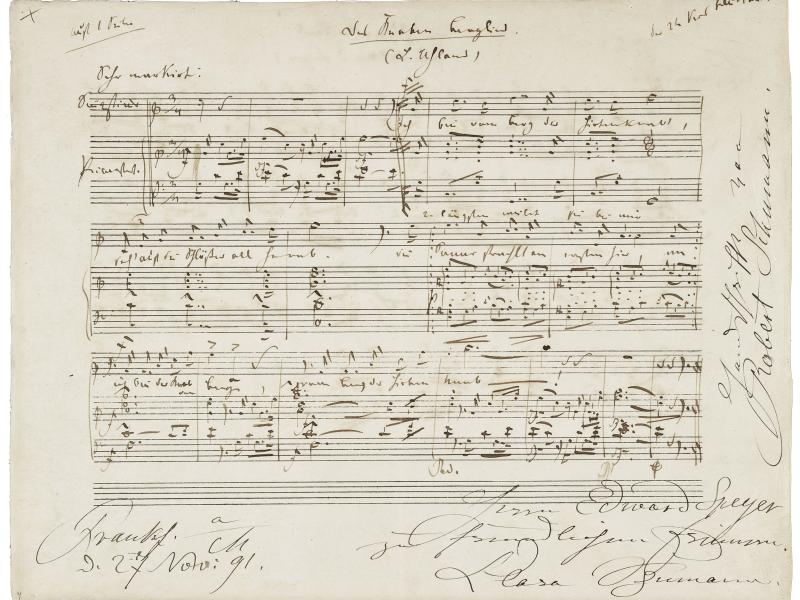 auf 1 Seite
Des Knaben Berglied.
(L. Uhland)
Sehr markirt:
Singstimme
Pianoforte.
Ich bin vom Berg der Hirtenknab,
am längsten weilet sie bei mir
seh' auf die Schlösser all herab. die Sonne strahlt am ersten hier, am
ich bin der Knab vom Berge, vom Berg der Hirtenknab
Ped.
Handschrift von
Robert Schumann.
Herrn Edward Speyer
zu freundlichem Erinnern.
Clara Schumann.
Frankf. a/M
D. 27 Nov: 91.